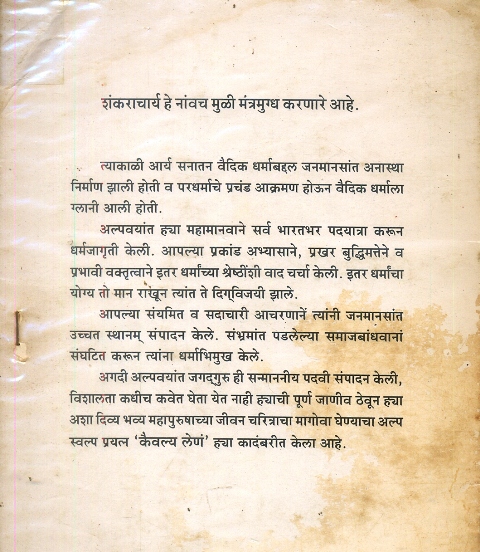 शंकराचार्य हे नांवच मुळी मंत्रमुग्ध करणारे आहे.
त्याकाळी आर्य सनातन वैदिक धर्माबद्दल जनमानसांत अनास्था
निर्माण झाली होती व परधर्माचे प्रचंड आक्रमण होऊन वैदिक धर्माला
ग्लानी आली होती.
अल्पवयांत ह्या महामानवाने सर्व भारतभर पदयात्रा करून
धर्मजागृती केली. आपल्या प्रकांड अभ्यासाने, प्रखर बुद्धिमत्तेने व
प्रभावी वक्तृत्वाने इतर धर्मांच्या श्रेष्ठींशी वाद चर्चा केली. इतर धर्मांचा
योग्य तो मान राखून त्यांत ते दिग्‌विजयी झाले.
आपल्या संयमित व सदाचारी आचरणानें त्यांनी जनमानसांत
उच्चत स्थानम् संपादन केले. संभ्रमांत पडलेल्या समाजबांधवानां
संघटित करून त्यांना धर्माभिमुख केले.
अगदी अल्पवयांत जगद्‌गुरु ही सन्माननीय पदवी संपादन केली,
विशालता कधीच कवेत घेता येत नाही ह्याची पूर्ण जाणीव ठेवून ह्या
अशा दिव्य भव्य महापुरुषाच्या जीवन चरित्राचा मागोवा घेण्याचा अल्प
स्वल्प प्रयत्न ‘कैवल्य लेणं’ ह्या कादंबरीत केला आहे.